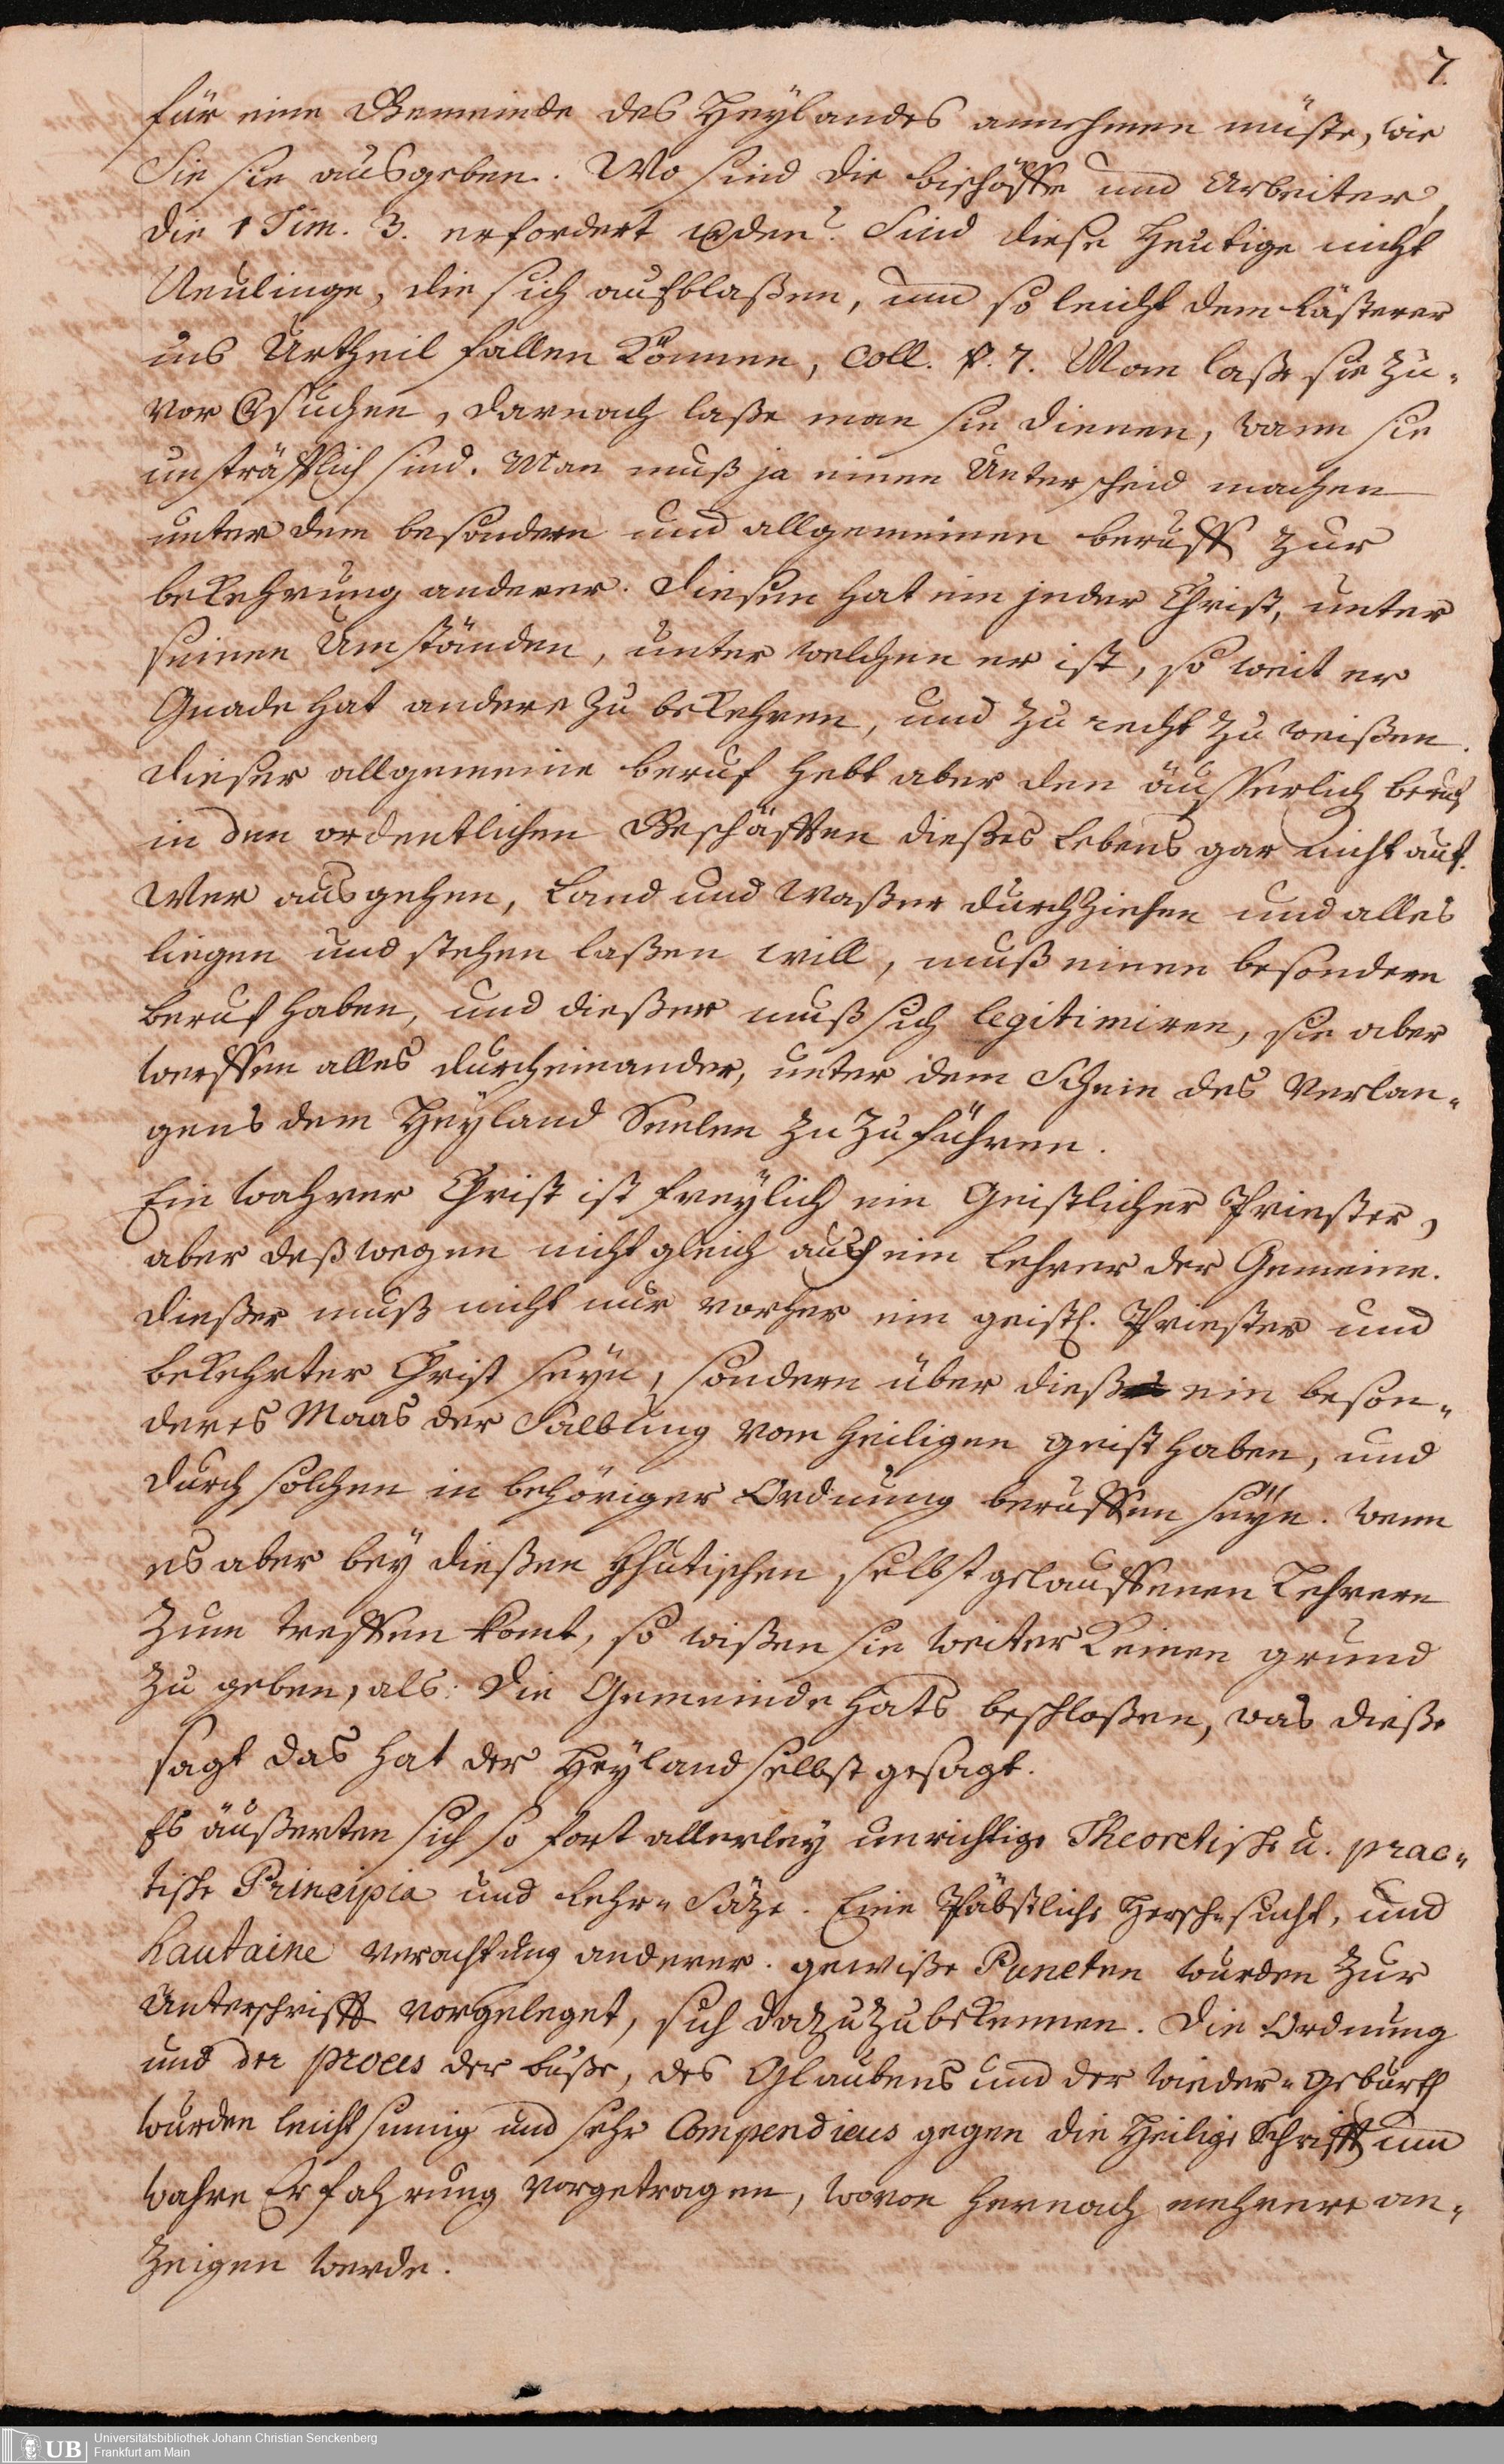 7.
für eine Gemeinde des Heÿlandes annehmen müste, wie
Sie sie ausgeben. Wo sind die bischöffe und Arbeiter,
die 1 Tim. 3. erfordert werden? Sind diese heutige nicht
Neulinge, die sich aufblaßen, und so leicht dem Lästerer
ins Urtheil fallen können, coll. v. 7. Man laße sie zu„
vor versuchen, darnach laße man sie dienen, wann sie
unsträfflich sind. Man muß ja einen Unterscheid machen
unter dem besondern und allgemeinen beruff zur
bekehrung anderer. diesen hat ein jeder Christ, unter
seinen Umständen, unter welchen er ist, so weit er
Gnade hat andere zu bekehren, und zu recht zu weißen.
dieser allgemeine beruf hebt aber den äusserlich beruf
in den ordentlichen Geschäfften dießes Lebens gar nicht auf.
Wer ausgehen, Land und Waßer durchziehen und alles
liegen und stehen laßen will, muß einen besondern
beruf haben, und dießer muß sich legitimiren, sie aber
werffen alles durcheinander, unter dem Schein des Verlan„
gens dem Heÿland Seelen zu zu führen.
Ein wahrer Christ ist freÿlich ein Geistlicher Priester,
aber deßwegen nicht gleich auch ein Lehrer der Gemeine.
dießer muß nicht nur vorher ein geistl. Priester und
bekehrter Christ seÿn, sondern über dieß ein beson„
deres Maas der Salbung vom heiligen geist haben, und
durch solchen in behöriger Ordnung beruffen seÿn. wenn
es aber beÿ dießen Hhutischen selbst gelauffenen Lehrern
zum treffen komt, so wißen sie weiter keinen grund
zu geben, als: die Gemeinde hats beschloßen, was dieße
sagt das hat der Heÿland selbst gesagt.
Es äußerten sich so fort allerleÿ unrichtige Theoretische u. prac„
tische Principia und Lehr„Säze. Eine Päbstliche Hersch„sucht, und
hautaine verachtung anderer. gewiße Puncten wurden zur
Unterschrifft vorgeleget, sich dazu zu bekennen. Die Ordnung
und der proces der buße, des Glaubens und der wieder„geburth
wurden leichtsinnig und sehr Compendieus gegen die Heilige Schrifft und
wahre Erfahrung vorgetragen, wovon hernach mehrere an„
zeigen werde.
Universitätsbibliothek Johann Christian Senckenberg
Frankfurt am Main
UB